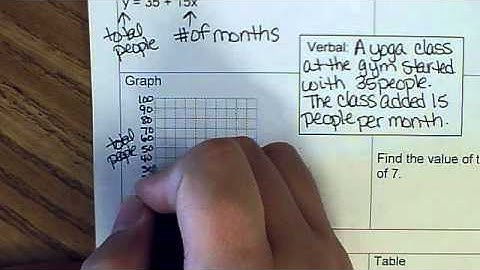 y = 35 + 15x
total
people
# of months
Verbal: A yoga class
at the gym started
with 35 people.
The class added 15
people per month.
Graph
100
90
80
70
60
50
40
total
people
Find the value of
of 7.
Table